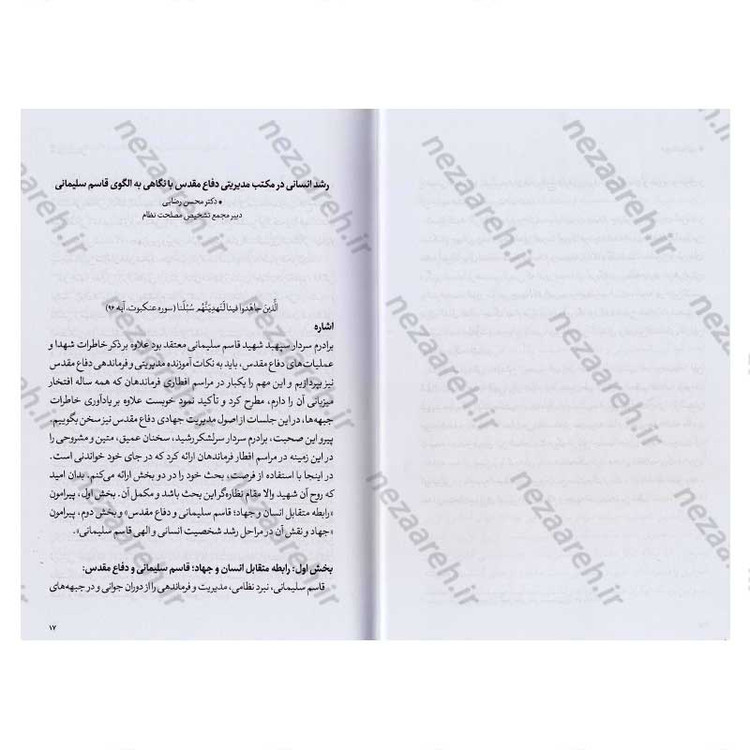 رشد انسانی در مکتب مدیریتی دفاع مقدس با نگاهی به الگوی قاسم سلیمانی
• دکتر محسن رضایی
دبیر مجمع تشخیص مصلحت نظام
الَّذینَ جاهَدوا فینا لَنَهدِیَنَّهُم سُبُلَنا (سوره عنکبوت، آیه ۹۶)
اشاره
برادرم سردار سپهبد شهید قاسم سلیمانی معتقد بود علاوه بر ذکر خاطرات شهدا و
عملیات‌های دفاع مقدس، باید به نکات آموزنده مدیریتی و فرماندهی دفاع مقدس
نیز بپردازیم و این مهم را یکبار در مراسم افطاری فرماندهان که همه ساله افتخار
میزبانی آن را دارم، مطرح کرد و تأکید نمود خوبست علاوه بر یادآوری خاطرات
جبهه‌ها، در این جلسات از اصول مدیریت جهادی دفاع مقدس نیز سخن بگوییم.
پیرو این صحبت، برادرم سردار سرلشکر رشید، سخنان عمیق، متین و مشروحی را
در این زمینه در مراسم افطار فرماندهان ارائه کرد که در جای خود خواندنی است.
در اینجا با استفاده از فرصت، بحث خود را در دو بخش ارائه می‌کنم. بدان امید
که روح آن شهید والا مقام نظاره‌گر این بحث باشد و مکمل آن. بخش اول، پیرامون
«رابطه متقابل انسان و جهاد؛ قاسم سلیمانی و دفاع مقدس» و بخش دوم، پیرامون
«جهاد و نقش آن در مراحل رشد شخصیت انسانی و الهی قاسم سلیمانی».
بخش اول: رابطه متقابل انسان و جهاد؛ قاسم سلیمانی و دفاع مقدس:
قاسم سلیمانی، نبرد نظامی، مدیریت و فرماندهی را از دوران جوانی و در جبهه‌های
۱۷
nezaareh.ir
nezaareh.ir
nezaareh.ir
nezaareh.ir
nezaareh.ir
nezaareh.ir
nezaareh.ir
nezaareh.ir